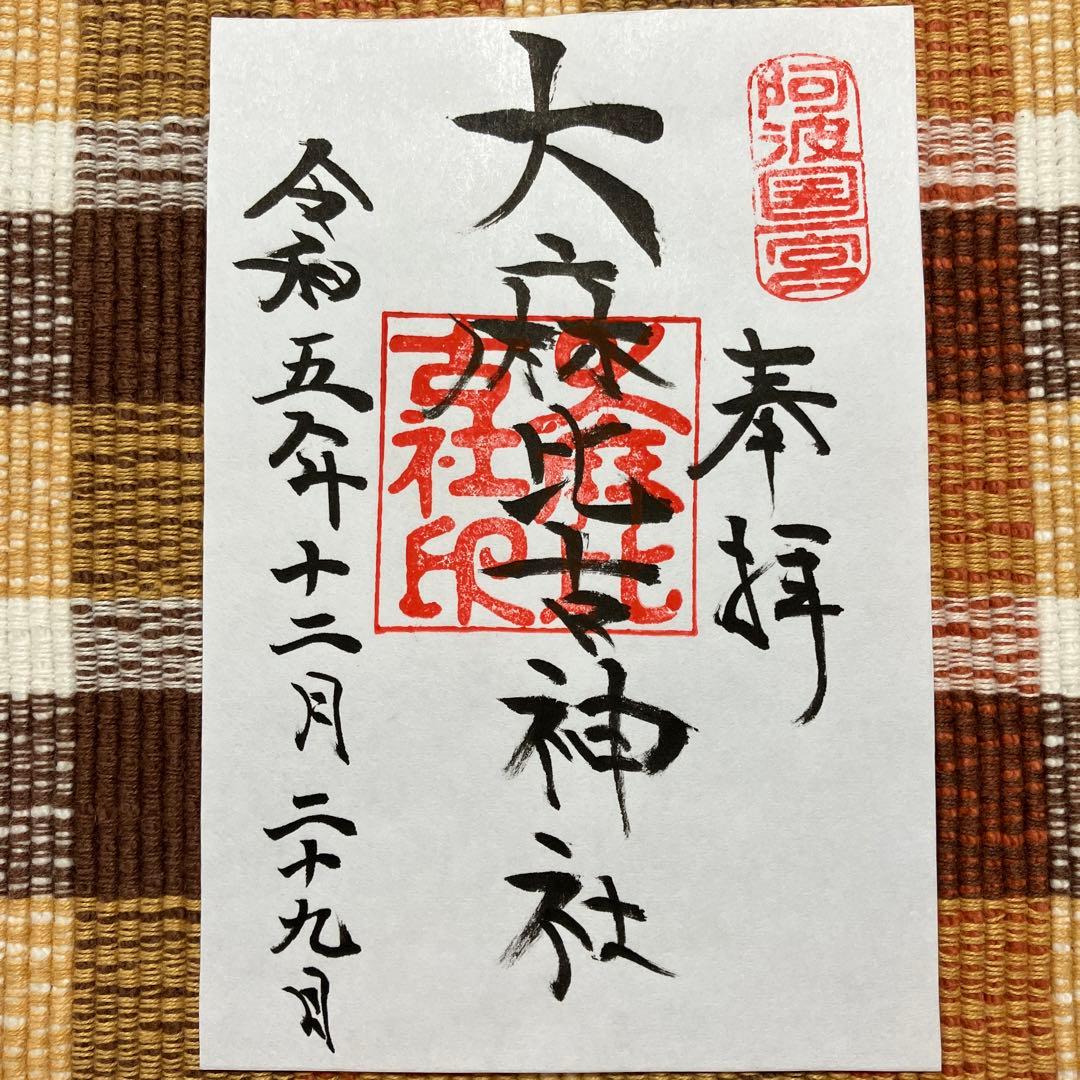 阿波国一宮
奉拝
大麻比古神社
大麻比古社印
令和五年十二月二十九日